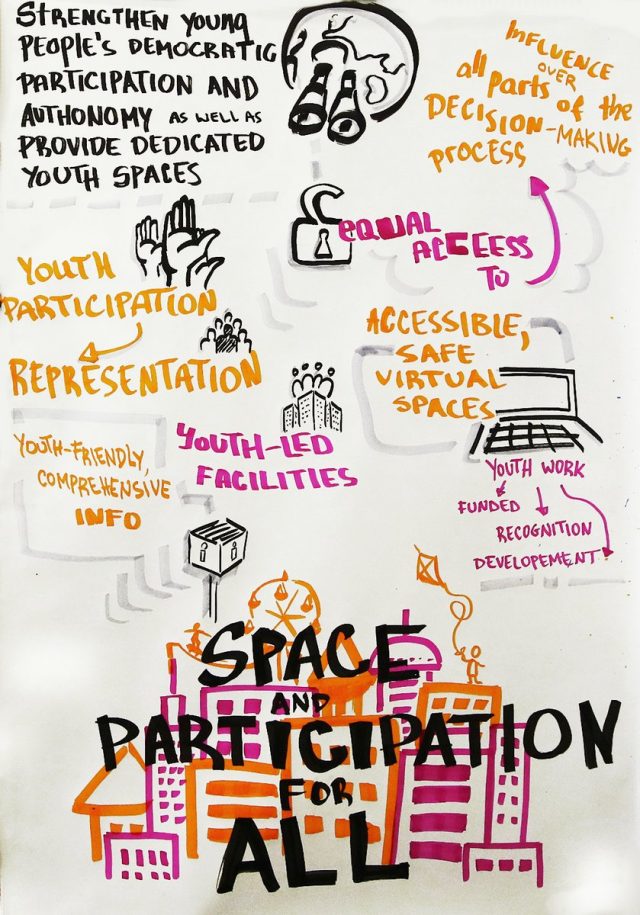 STRENGTHEN YOUNG
PEOPLE'S DEMOCRATIC
PARTICIPATION AND
AUTHONOMY AS WELL AS
PROVIDE DEDICATED
YOUTH SPACES
INFLUENCE
OVER
all parts of the
DECISION-MAKING
PROCESS
EQUAL
ACCEESS
TO
YOUTH
PARTICIPATION
REPRESENTATION
ACCESSIBLE,
SAFE
VIRTUAL
SPACES
YOUTH-FRIENDLY,
COMPREHENSIVE
INFO
YOUTH-LED
FACILITIES
YOUTH WORK
FUNDED
RECOGNITION
DEVELOPEMENT
i i
SPACE
AND
PARTICIPATION
FOR
ALL